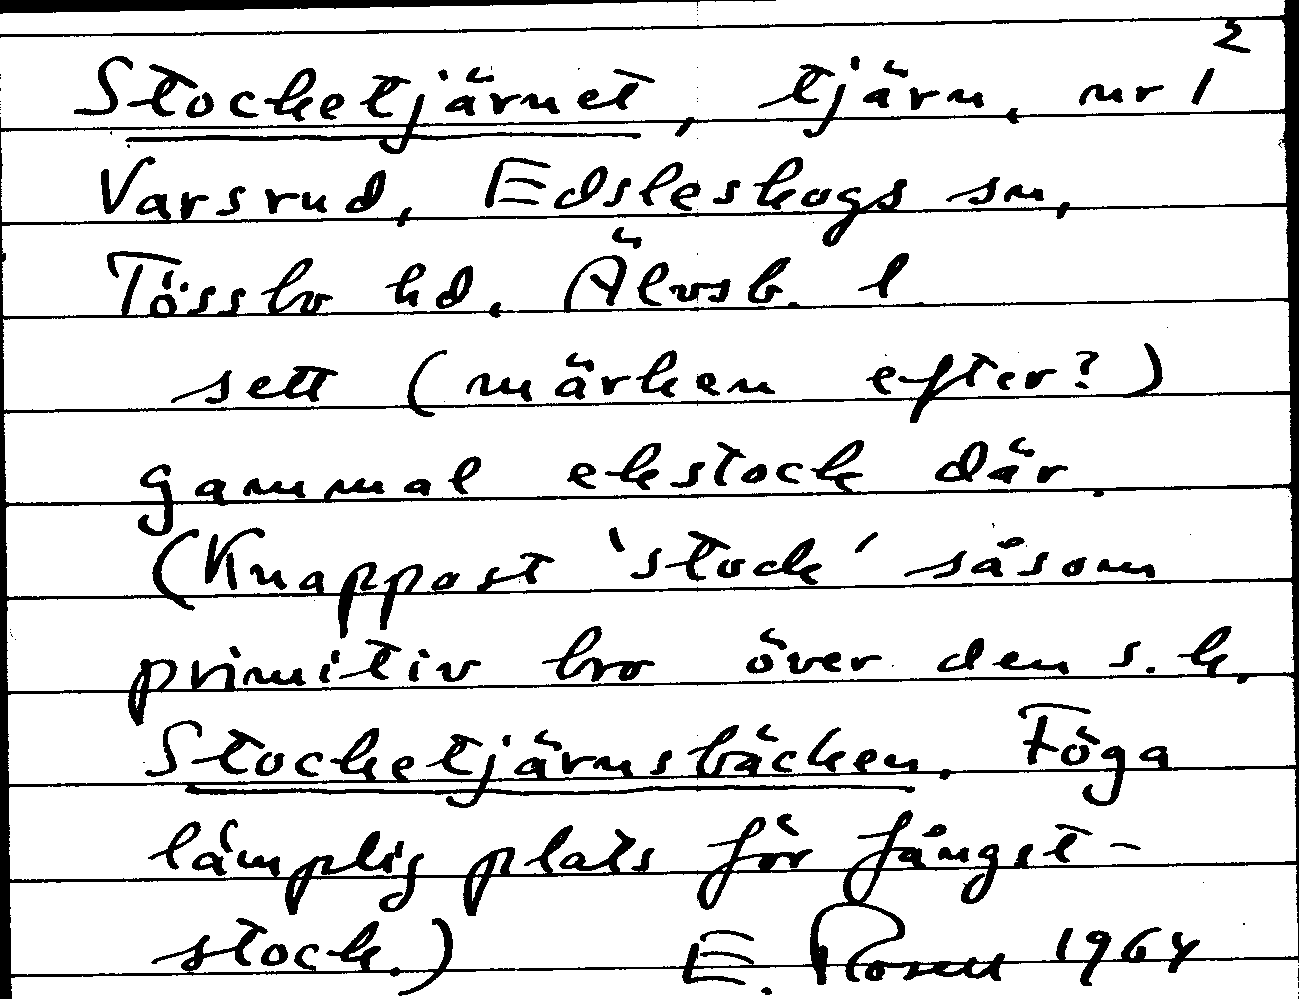 2
Stocketjärnet, tjärn, nr 1
Varsrud, Edsleskogs sn,
Tössbo hd. Älvsb. l
sett (märken efter?)
gammal ekstock där.
(Knappast 'stock' såsom
primitiv bro över den s.k.
Stocketjärnsbäcken. Föga
lämplig plats för fångst-
stock.) E. Rosell 1964